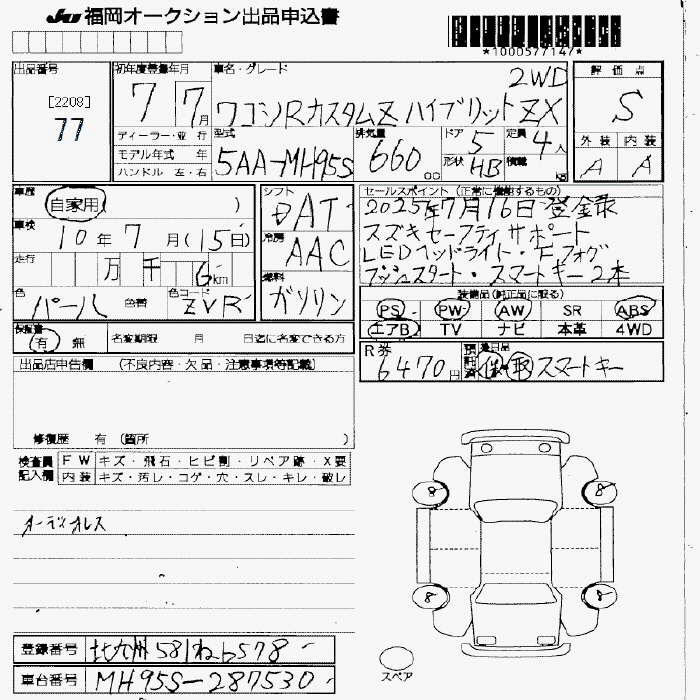 JU 福岡オークション出品申込書
*1000577147*
出品番号
[2208]
77
初年度登録年月
7 7月
車名・グレード
2WD
ワゴンRカスタムZ ハイブリットZX
評価点
S
外装 内装
A A
ディーラー・並行
モデル年式 年
ハンドル 左・右
型式
5AA-MH95S
排気量
660 cc
ドア 5
形状 HB
定員 4人
積載 kg
車歴
自家用 )
車検
10年7月(15日)
走行
万 千 6km
色
パール
色番
色コード
ZVR
シフト
DAT
冷房
AAC
燃料
ガソリン
セールスポイント (正常に機能するもの)
2025年7月16日登録
スズキセーフティサポート
LEDヘッドライト・Fフォグ
プッシュスタート・スマートキー2本
装備品(純正品に限る)
PS PW AW SR ABS
エアB TV ナビ 本革 4WD
保証書
有 無
名変期限 月 日迄に名変できる方
R券
6470円
預託済
後日品
保・取 スマートキー
出品店申告欄 (不良内容・欠品・注意事項等記載)
修復歴 有 (箇所 )
検査員記入欄
FW キズ・飛石・ヒビ割・リペア跡・X要
内装 キズ・汚レ・コゲ・穴・スレ・キレ・破レ
オーディオレス
8 8
8 8
スペア
登録番号 北九州 581ね6578
車台番号 MH95S-287530